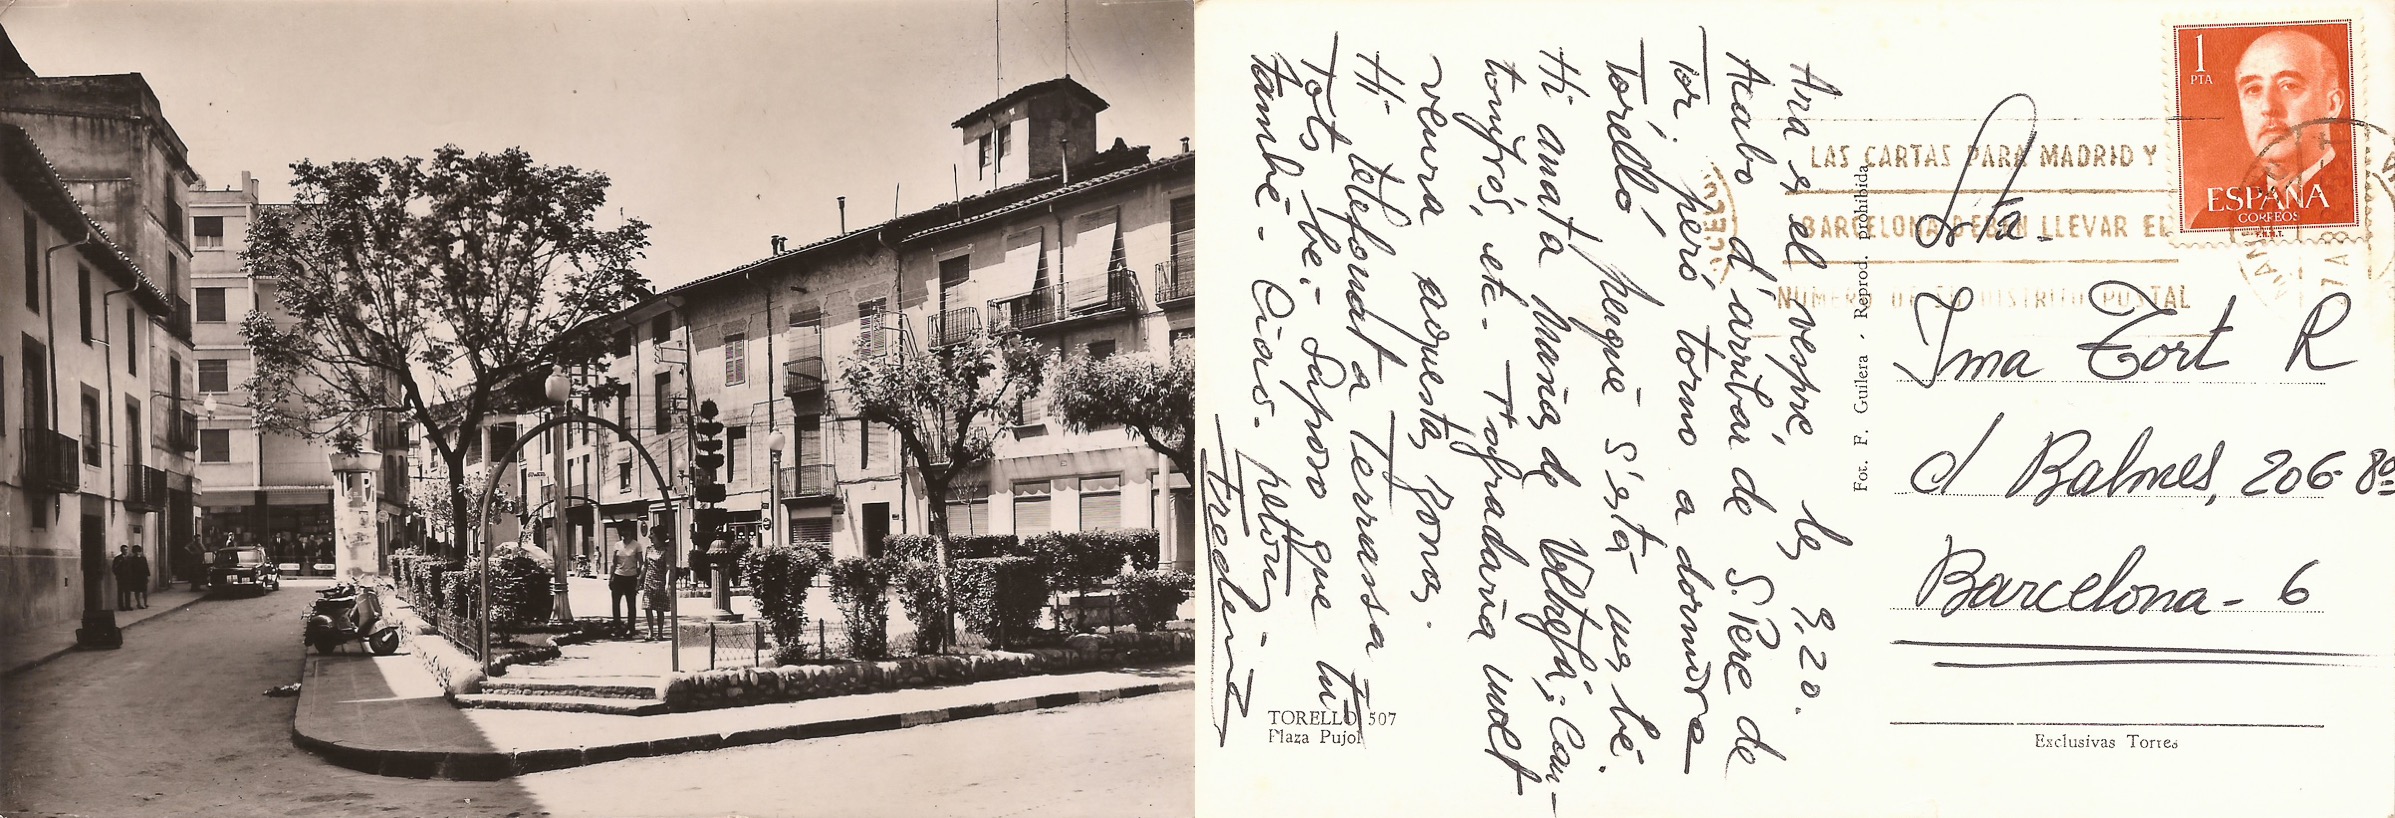 Ara és el vespre, les 9,20.
Acabo d'arribar de S. Pere de
Tor. però torno a dormir a
Torelló perquè s'està més bé.
Hi anat a Mañá, de Vallfefú, Can-
tonfrós, etc. T'agradaria molt
veure aquesta zona.
Hi telefonat a Terrassa
Tots bé. Suposo que tú
també. Ciao. petons
Frederic
TORELLO 507
Plaza Pujol
Fot. F. Guilera - Reprod. prohibida
1
PTA
ESPAÑA
CORREOS
F.N.M.T.
LAS CARTAS PARA MADRID Y
BARCELONA DEBEN LLEVAR EL
NUMERO DE SU DISTRITO POSTAL
Sta.
Ima Tort R
c/ Balmes, 206-8º
Barcelona - 6
Exclusivas Torres